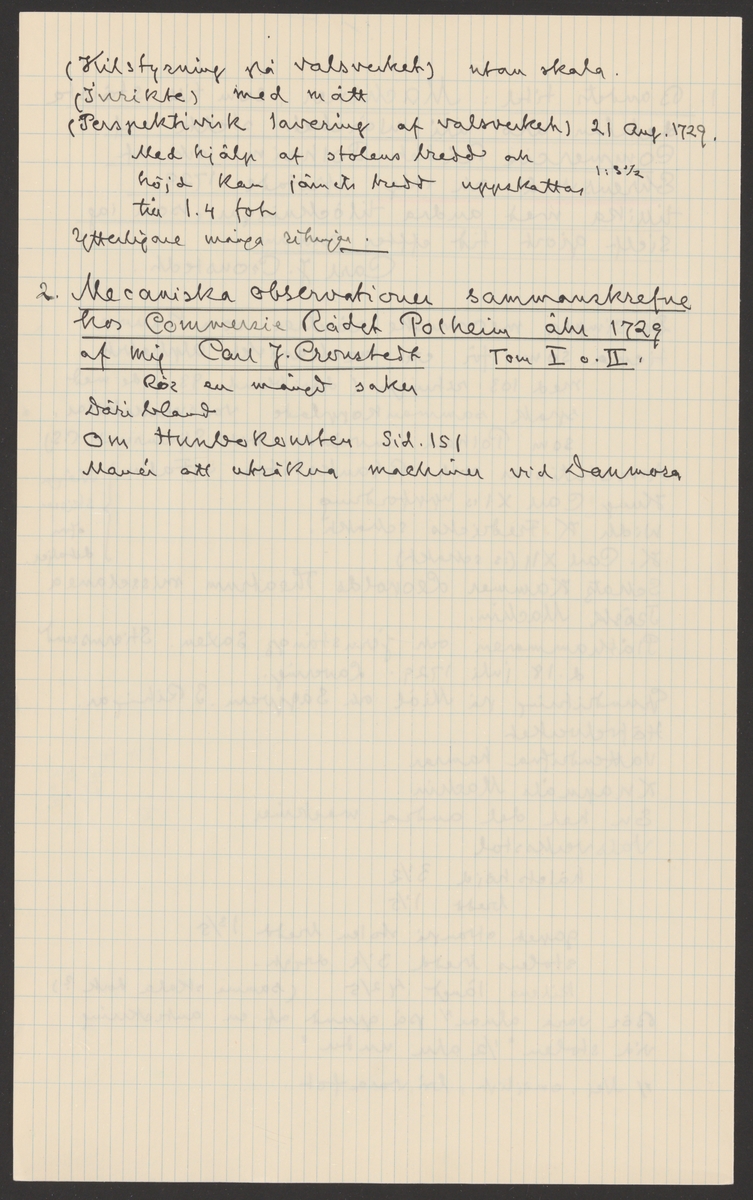 (Kilstyrning på valsverket) utan skala.
(Inrikte) med mått
(Perspektivisk lavering af valsverket) 21 Aug. 1729.
Med hjälp af stolens bredd och
höjd kan järnets bredd uppskattas 1:3½
till 1.4 fot
Ytterligare många ritningar.
2. Mecaniska observationer sammanskrefne
hos Commersie Rådet Polheim åhr 1729
af mig Carl J. Cronstedt Tom I o. II.
Rör en mängd saker
Däribland
Om Hunbokonsten Sid. 151
Manér att uträkna machiner vid Danmora